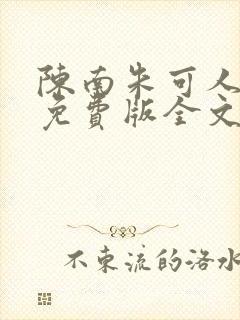 陳南朱可人
免費版全文
不束流的洛水